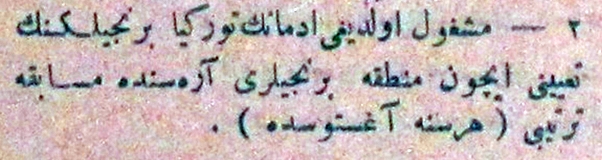 ٢ — مشغول اولدیغی ادمانك توركیا برنجیلكنك
تعیینی ایچون منطقه برنجیلری آره‌سنده مسابقه
ترتیبی ( هرسنه آغستوسده ) .